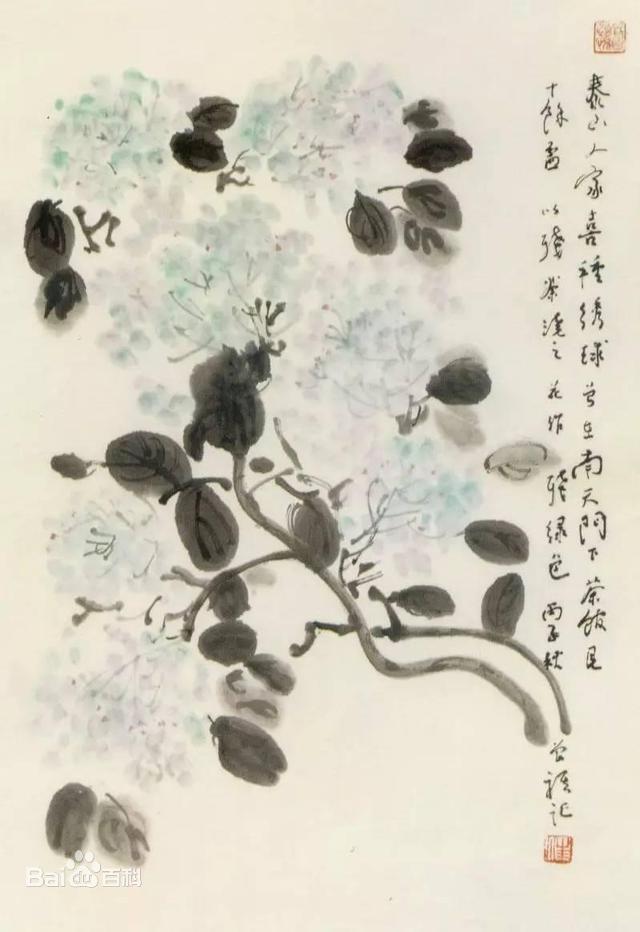 泰山人家喜種繡球曾在南天門下茶館見
十餘盆以殘茶澆之花作殘綠色丙子秋
曾祺記
Baidu百科